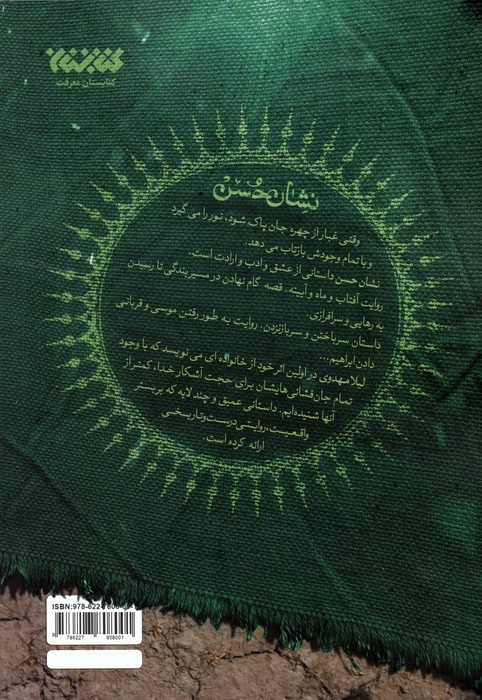 کتابستان معرفت
نشان حُسن
وقتی غبار از چهره جان پاک شود، نور را می‌گیرد
و با تمام وجودش بازتاب می‌دهد.
نشان حسن داستانی از عشق و ادب و ارادت است.
روایت آفتاب و ماه و آیینه. قصه گام نهادن در مسیر بندگی تا رسیدن
به رهایی و سرافرازی.
داستان سرباختن و سرباز نزدن. روایت به طور رفتن موسی و قربانی
دادن ابراهیم...
لیلا مهدوی در اولین اثر خود از خانواده ای می نویسد که با وجود
تمام جان‌فشانی‌هایشان برای حجت آشکار خدا، کمتر از
آنها شنیده‌ایم. داستانی عمیق و چند لایه که بر بستر
واقعیت، روایتی درست و تاریخی
ارائه کرده است.
ISBN:978-622-7808-
9 786227 808001